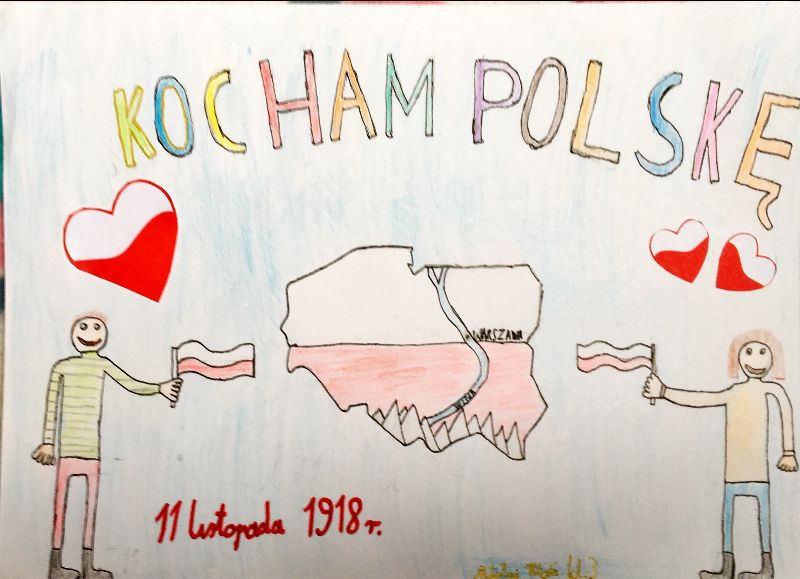 KOCHAM POLSKĘ
WARSZAWA
WISŁA
11 listopada 1918 r.
kl.3